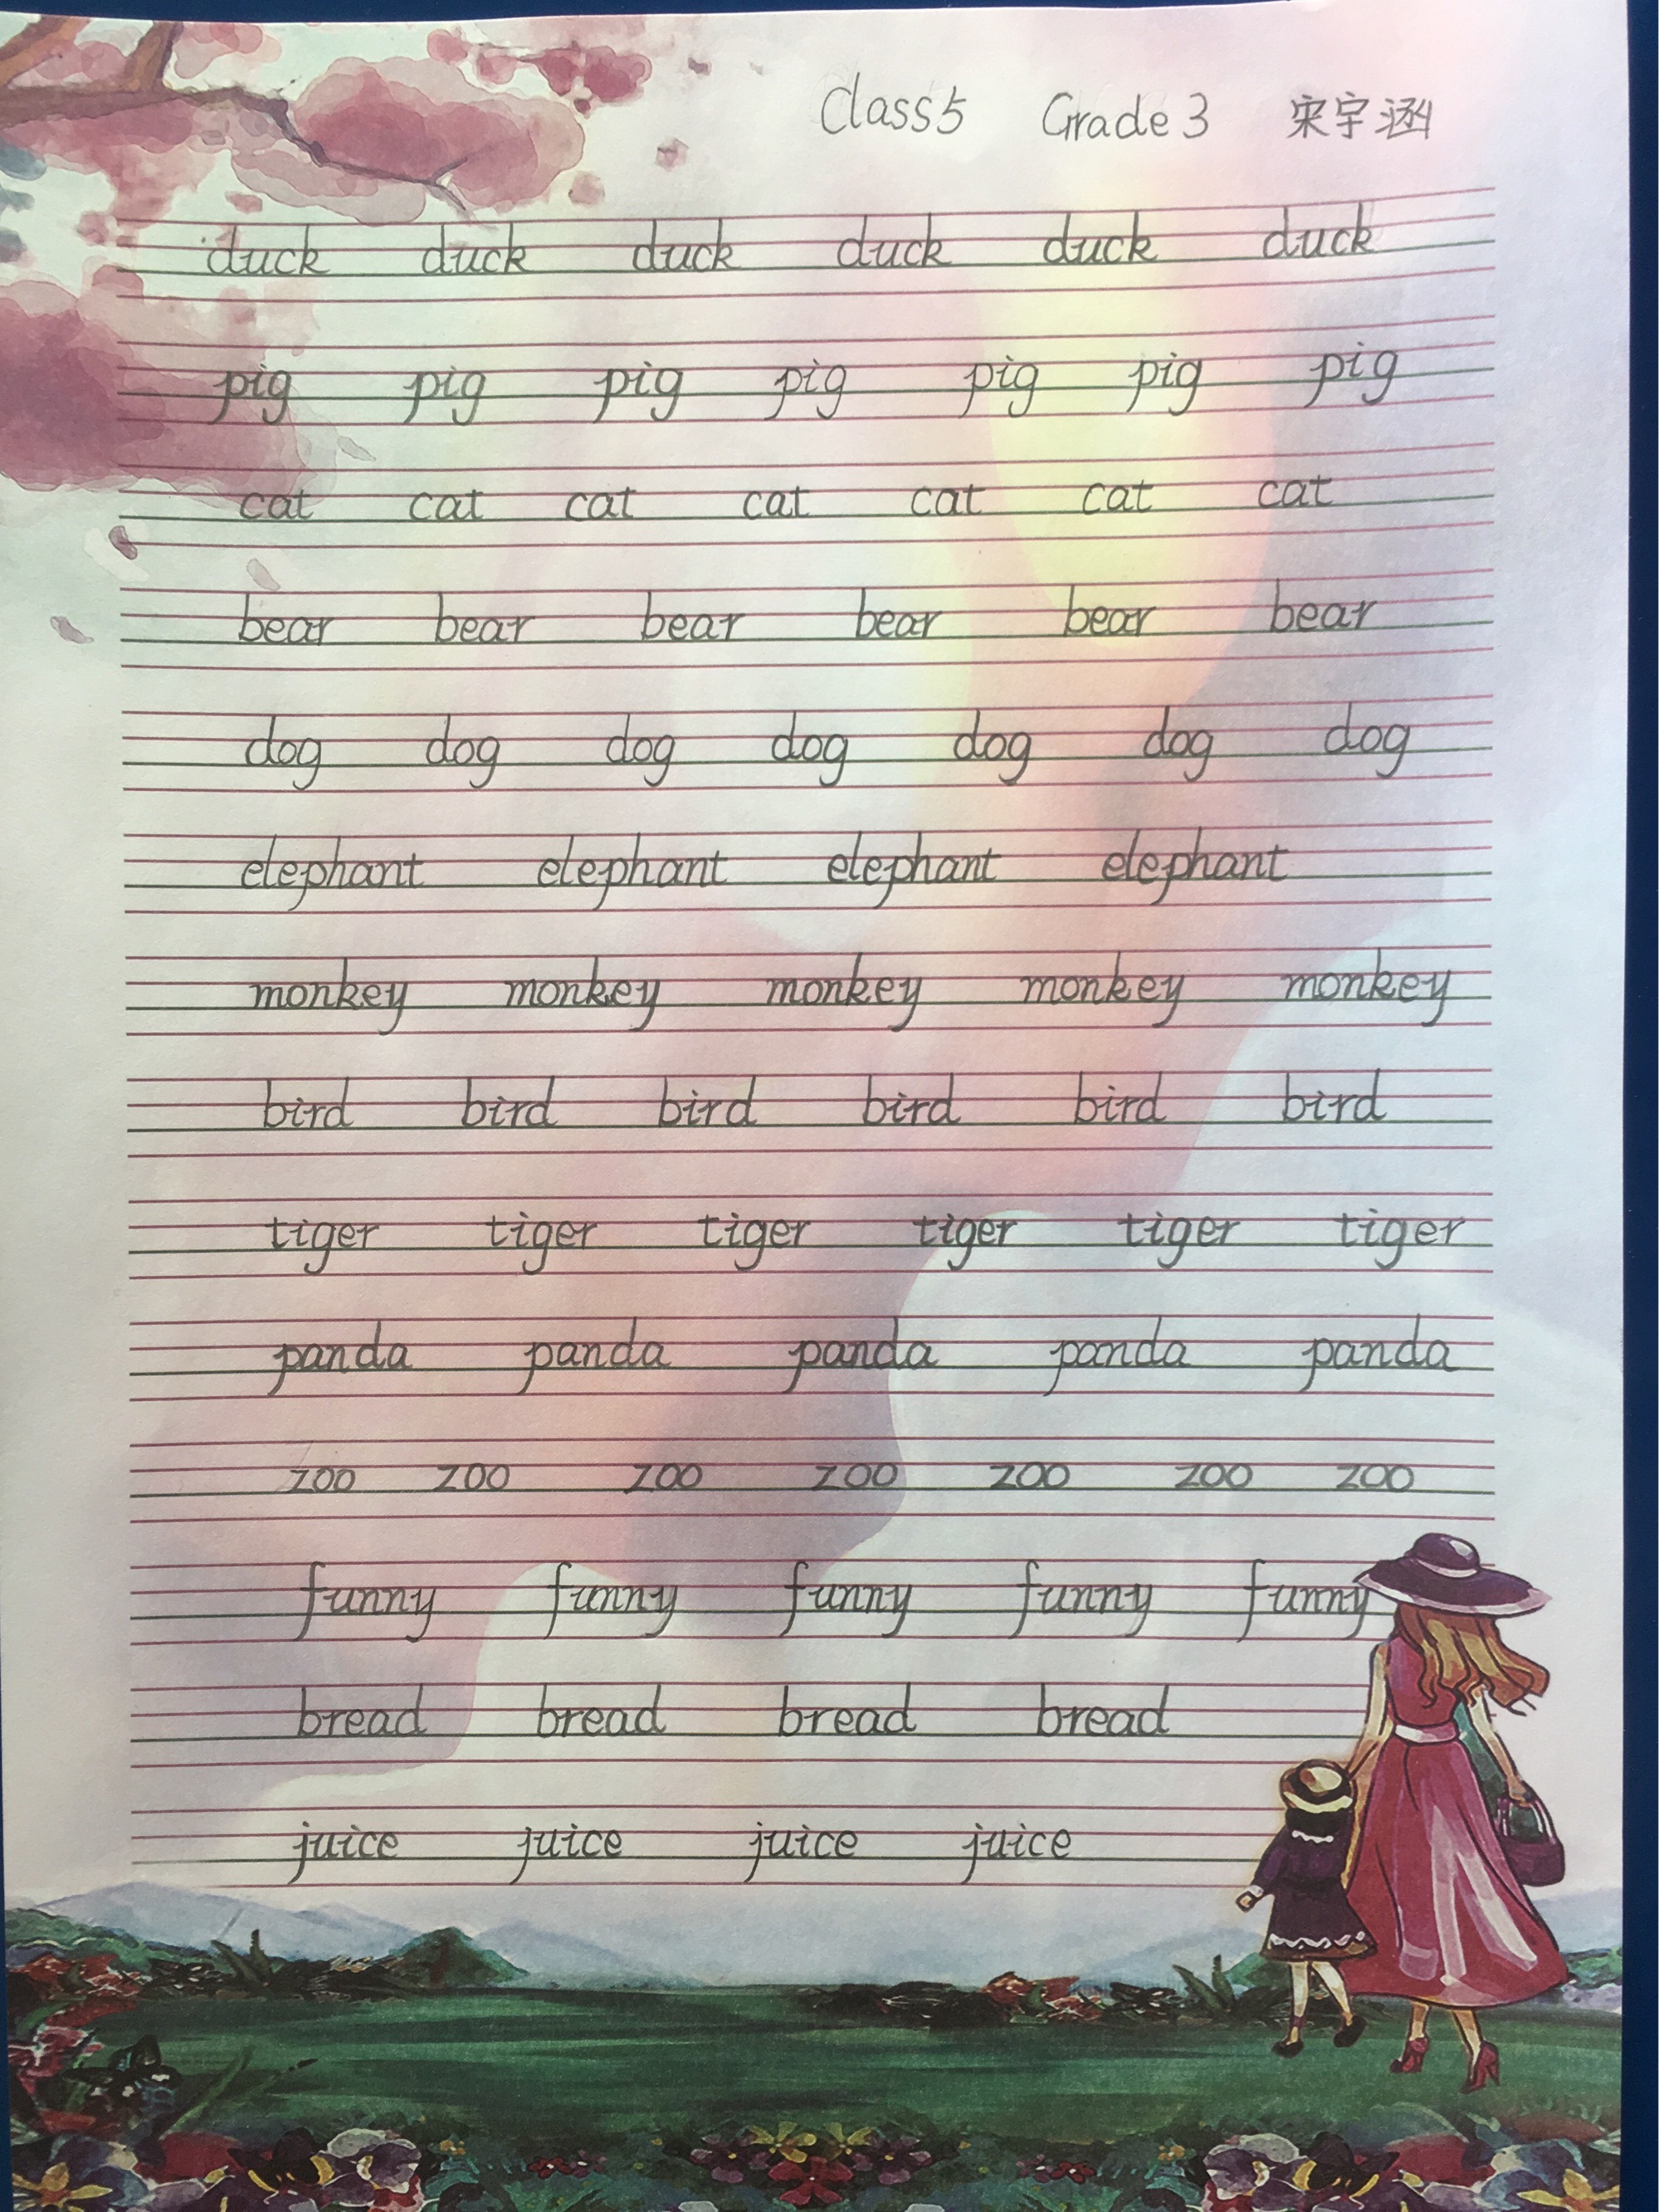 Class5 Grade3 宋宇涵
duck duck duck duck duck duck
pig pig pig pig pig pig pig
cat cat cat cat cat cat cat
bear bear bear bear bear bear
dog dog dog dog dog dog dog
elephant elephant elephant elephant
monkey monkey monkey monkey monkey
bird bird bird bird bird bird
tiger tiger tiger tiger tiger tiger
panda panda panda panda panda
zoo zoo zoo zoo zoo zoo zoo
funny funny funny funny funny
bread bread bread bread
juice juice juice juice